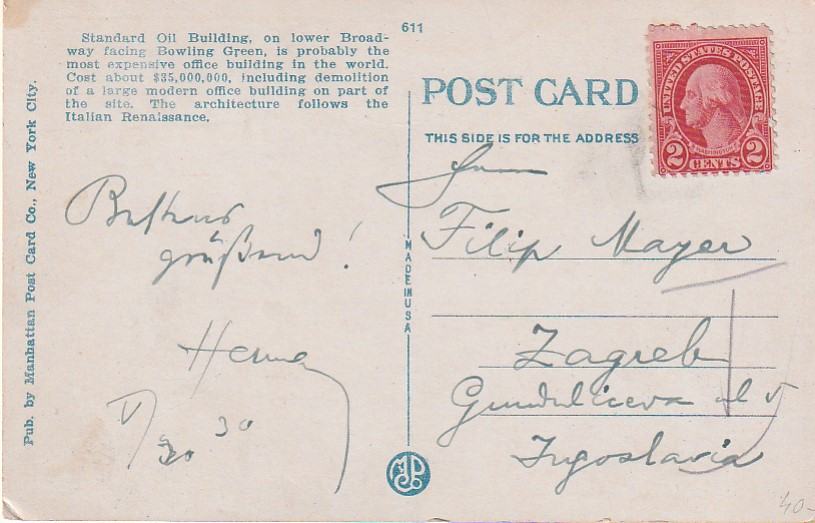 Standard Oil Building, on lower Broad-
way facing Bowling Green, is probably the
most expensive office building in the world.
Cost about $35,000,000, including demolition
of a large modern office building on part of
the site. The architecture follows the
Italian Renaissance.
611
POST CARD
THIS SIDE IS FOR THE ADDRESS
UNITED STATES POSTAGE
WASHINGTON
2 CENTS 2
Pub. by Manhattan Post Card Co., New York City.
Bestens
grüßend!
V/30 30
MADE IN USA
Herrn
Filip Mayer
Zagreb
Gunduliceva ul 5
Jugoslavia
40-